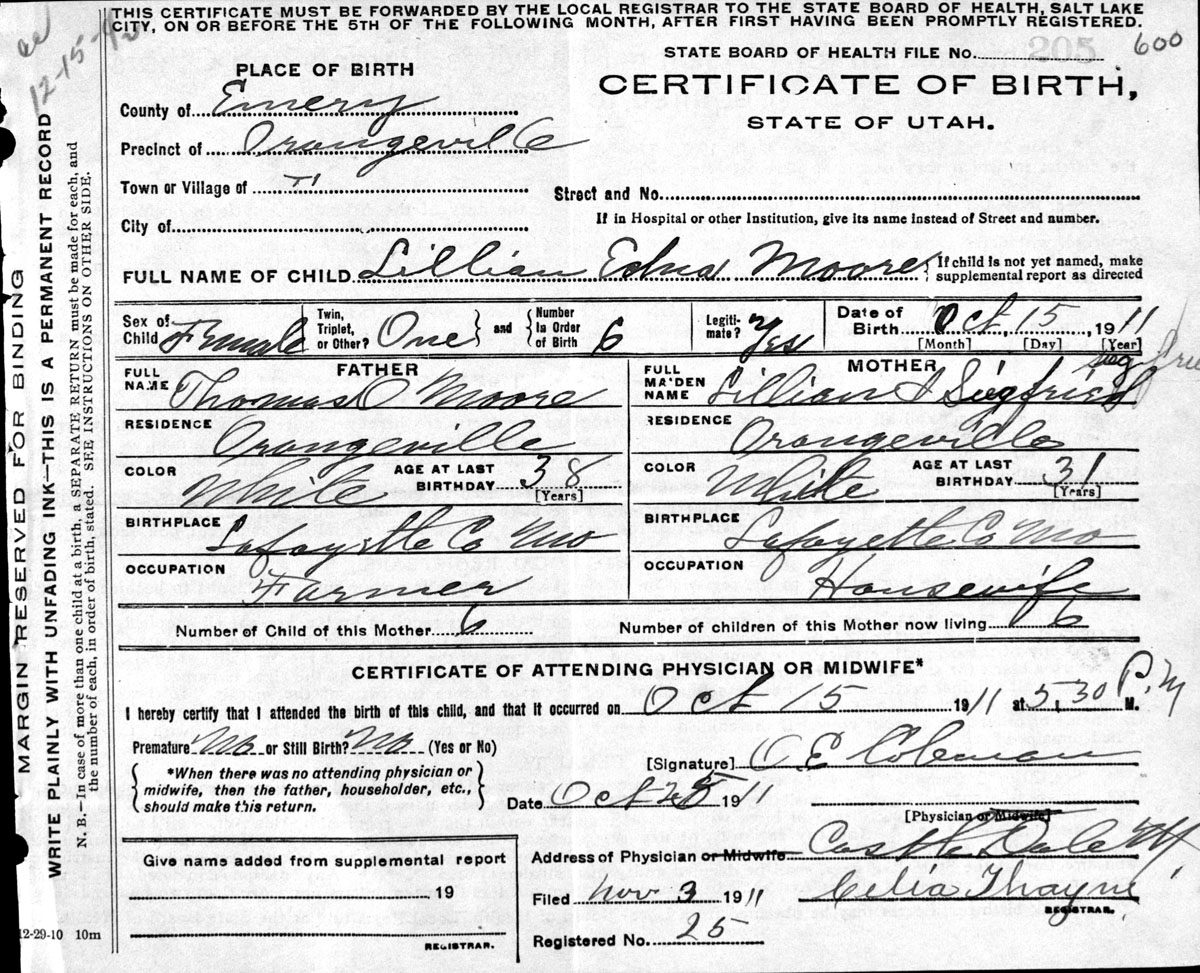 THIS CERTIFICATE MUST BE FORWARDED BY THE LOCAL REGISTRAR TO THE STATE BOARD OF HEALTH, SALT LAKE
CITY, ON OR BEFORE THE 5TH OF THE FOLLOWING MONTH, AFTER FIRST HAVING BEEN PROMPTLY REGISTERED.
12-15-42
STATE BOARD OF HEALTH FILE No. 205 600
PLACE OF BIRTH
CERTIFICATE OF BIRTH,
STATE OF UTAH.
County of Emery
Precinct of Orangeville
Town or Village of "
Street and No.
City of
If in Hospital or other Institution, give its name instead of Street and number.
FULL NAME OF CHILD Lillian Edna Moore { If child is not yet named, make
supplemental report as directed
Sex of Child Female
Twin, Triplet, or Other? One } and { Number In Order of Birth 6
Legitimate? Yes
Date of Birth Oct 15, 1911
[Month] [Day] [Year]
FATHER
FULL NAME Thomas O Moore
MOTHER
FULL MAIDEN NAME Lillian I Siegfried
RESIDENCE Orangeville
RESIDENCE Orangeville
COLOR White AGE AT LAST BIRTHDAY 38 [Years]
COLOR White AGE AT LAST BIRTHDAY 31 [Years]
BIRTHPLACE Lafayette Co Mo
BIRTHPLACE Lafayette Co Mo
OCCUPATION Farmer
OCCUPATION Housewife
Number of Child of this Mother 6
Number of children of this Mother now living 6
CERTIFICATE OF ATTENDING PHYSICIAN OR MIDWIFE*
I hereby certify that I attended the birth of this child, and that it occurred on Oct 15 1911 at 5,30 P.M M.
Premature No or Still Birth? No (Yes or No)
{ *When there was no attending physician or
midwife, then the father, householder, etc.,
should make this return. }
[Signature] O E Coleman
Date Oct 25 1911
[Physician or Midwife]
Address of Physician or Midwife Castle Dale Ut
Filed Nov 3 1911 Celia Thayne
REGISTRAR.
Registered No. 25
Give name added from supplemental report
19
REGISTRAR.
12-29-10 10m
MARGIN RESERVED FOR BINDING
WRITE PLAINLY WITH UNFADING INK—THIS IS A PERMANENT RECORD
N. B.—In case of more than one child at a birth, a SEPARATE RETURN must be made for each, and
the number of each, in order of birth, stated. SEE INSTRUCTIONS ON OTHER SIDE.